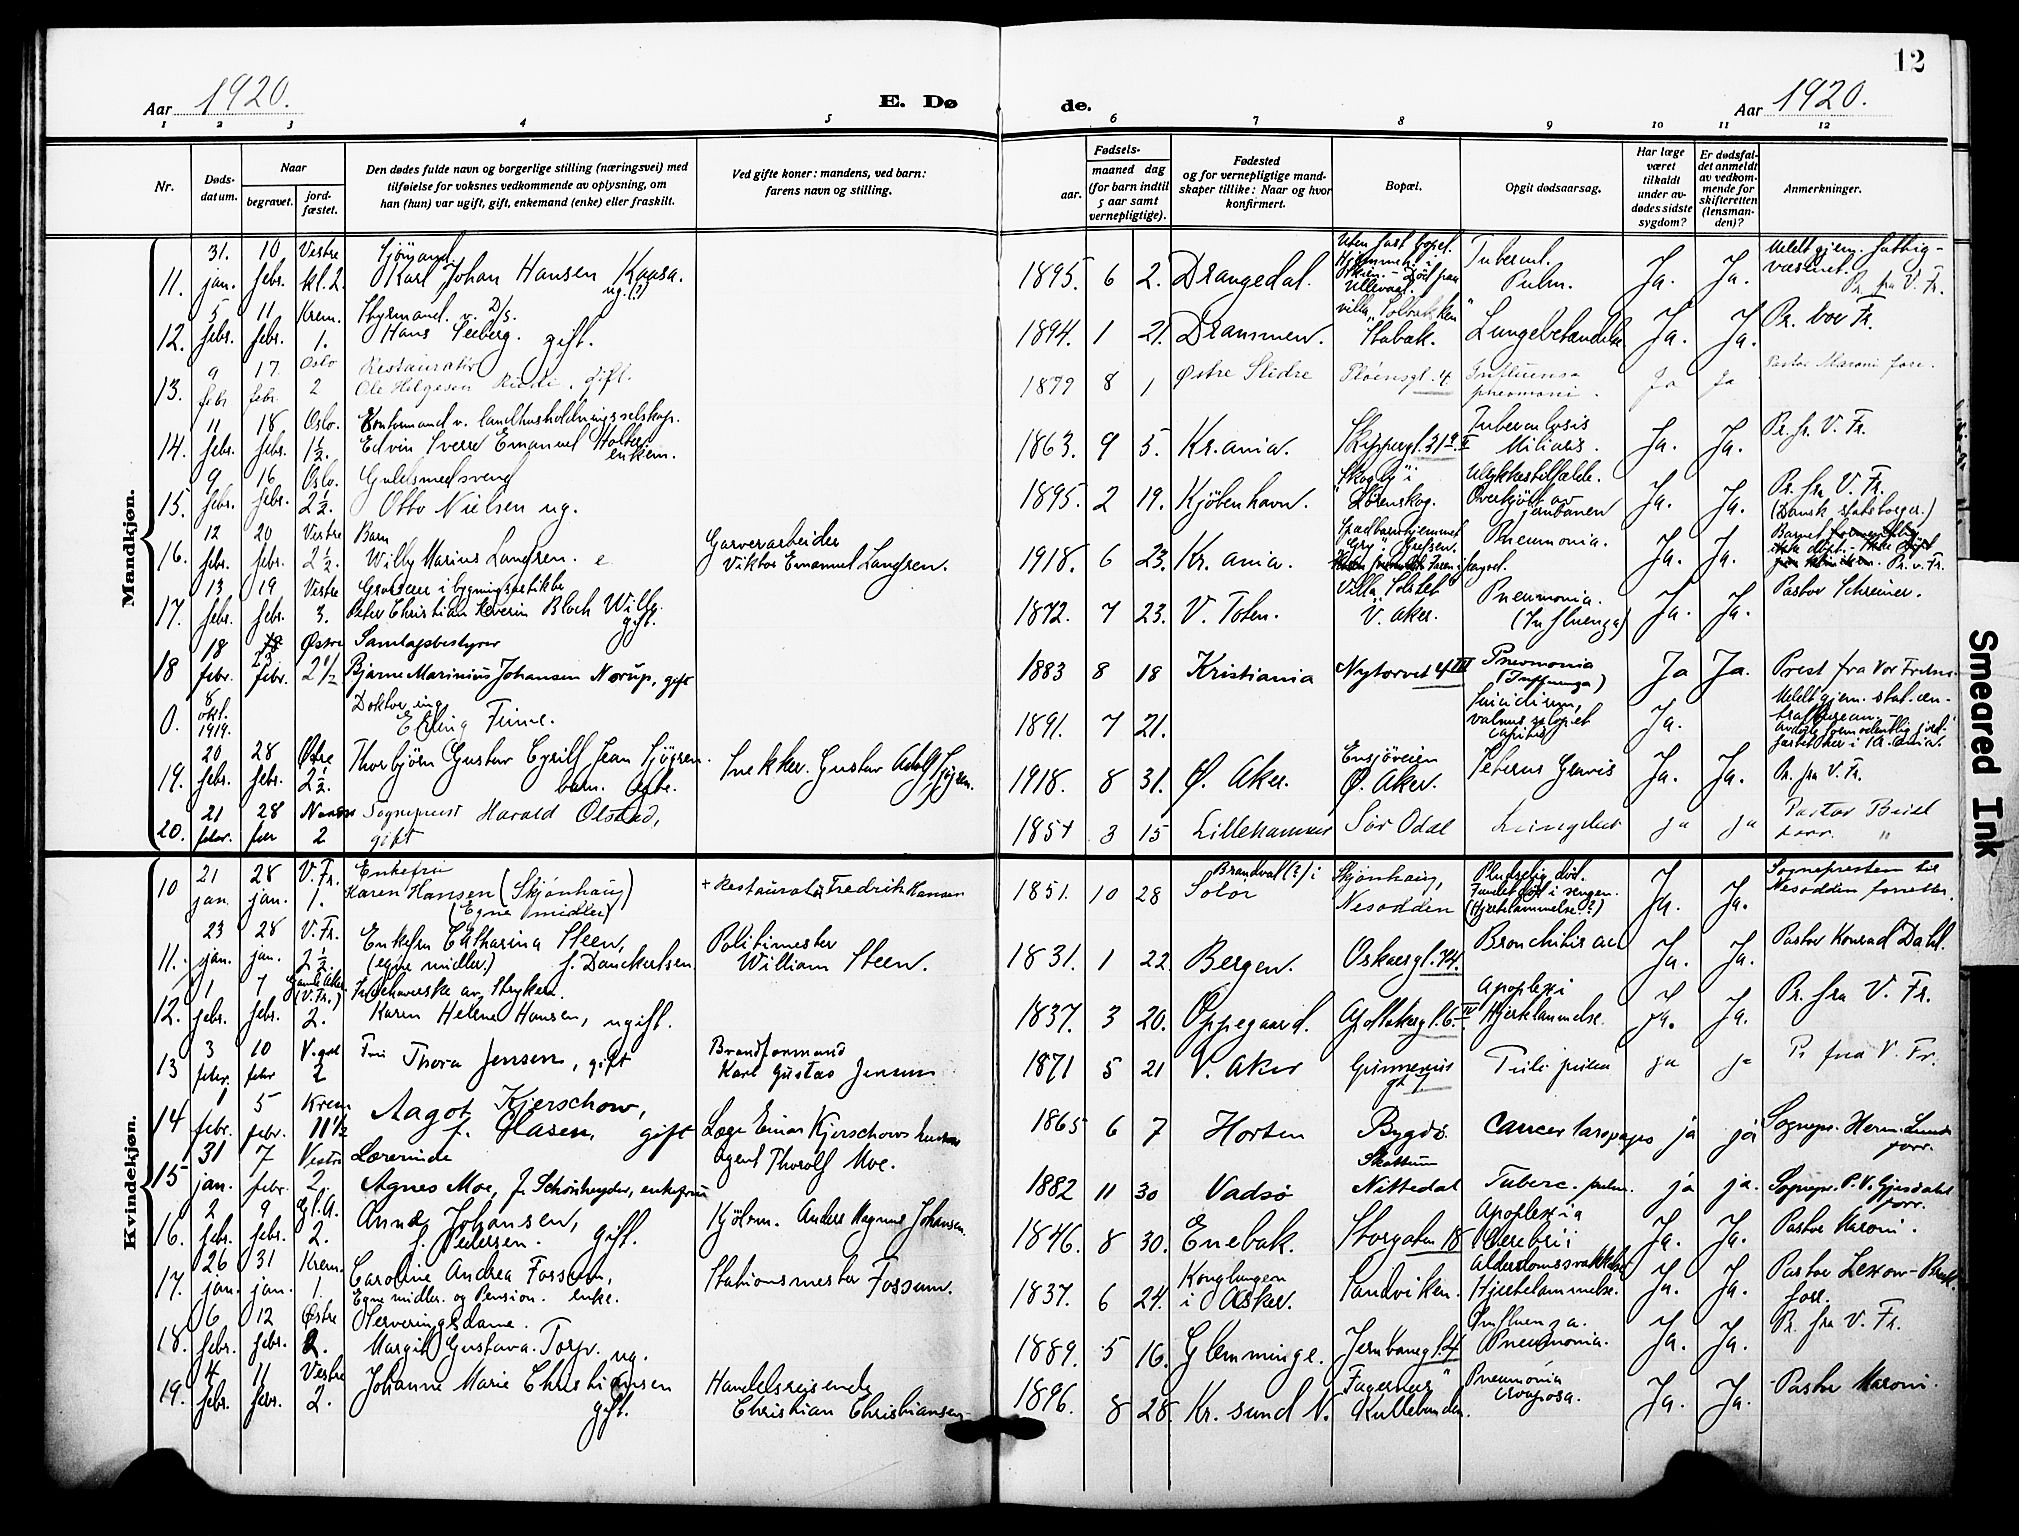 12
Aar 1920.
E. Dø
de.
Aar 1920.
1 2 3 4 5 6 7 8 9 10 11 12
Nr.
Døds-
datum.
Naar
begravet.
jord-
fæstet.
Den dødes fulde navn og borgerlige stilling (næringsvei) med
tilføielse for voksnes vedkommende av oplysning, om
han (hun) var ugift, gift, enkemand (enke) eller fraskilt.
Ved gifte koner: mandens, ved barn:
farens navn og stilling.
Fødsels-
aar.
maaned dag
(for barn indtil
5 aar samt
vernepligtige).
Fødested
og for vernepligtige mand-
skaper tillike: Naar og hvor
konfirmert.
Bopæl.
Opgit dødsaarsag.
Har læge
været
tilkaldt
under av-
dødes sidste
sygdom?
Er dødsfal-
det anmeldt
av vedkom-
mende for
skifteretten
(lensman-
den)?
Anmerkninger.
Mandkjøn.
11. 31. jan. 10 febr. Vestre kl. 2. Sjømand. Karl Johan Hansen Kaasa. ug.(?) 1895. 6 2. Drangedal. Uten fast bopæl. Død paa Ullevaal. Tubercul. Pulm. Ja. Ja. Meldt gjem. fattig-
væsenet. Pr. fra V. Fr.
12. 5 febr. 11 febr. Krem. 1. Styrmand v. D/S. Hans Seeberg. gift. 1894. 1 21. Drammen. villa "Solbakken" Stabæk. Lungebetændelse Ja. Ja. Pr. vor Fr.
13. 9 febr 17. febr. Oslo 2 Restauratør Ole Helgesen Rudi, gift. 8 1 Østre Slidre Pløensgt. 4 Influensa pneumoni. Ja Ja Pastor Maroni forr.
14. 11 febr. 18 febr. Oslo. 1½. Kontormand v. landhusholdningsselskap. Edvin Sverre Emanuel Holter enkem. 1863. 9 5. Kr.ania. Skippergt. Tuberculosis Miliaris. Ja. Ja. Pr. fr. V. Fr.
15. 9 febr. 16 febr. Oslo. 2½. Guldsmedsvend Otto Nielsen ug. 1895. 2 19. Kjøbenhavn. "Skogly" i Lørenskog. Ulykkestilfælde. Overkjørt av jernbanen Ja. Ja. Pr. fra V. Fr. (Dansk statsborger.)
16. 12 febr. 20 febr. Vestre 2½. Barn Willy Marius Langsren. e Garverarbeider Viktor Emanuel Langsren. 1918. 6 23. Kr. ania. Spædbarnhjemmet "Gry" i Grefsen. Pneumonia. Ja. Ja. Pr. v. Fr.
17. 13 febr. 19 febr. Vestre 3. Grosserer i bygningsartikler Peter Christian Severin Bloch Willg. gift. 1872. 7 23. V. Toten. Villa "Solstet" V. Aker. Pneumonia. (Influenza) Ja. Ja. Pastor Schreiner.
18 18 febr. 23 febr. Østre 2½ Samlagsbestyrer Bjarne Marinius Johansen Nørup, gift 1883 8 18 Kristiania Nytorvet 4 III Pneumonia (Influenza) Ja Ja. Prest fra Vor Frelsers
0. 8 okt. 1919. Doktor ing. Erling Finne. 1891. 7 21. Suicidium, vulnus sclopet. capitis Ja. Meldt gjem. stat. cen-
tralbureau.
19. 20 febr. 28 febr. Østre 2½. Thorbjørn Gustav Cyrill Jean Sjøgren. barn. egte. Snekker. Gustav Adolf Sjøgren. 1918. 8 31. Ø. Aker. Ensjøveien Ø. Aker. Icterus Gravis Ja. Ja. Pr. fra V. Fr.
20. 21 febr. 28 febr Nordre 2 Sogneprest Harald Olstad, gift 3 15 Lillehammer Sør Odal ja ja Pastor forr.
Kvindekjøn.
10 21 jan. 28 jan. V. Fr. 1. Enkefru Karen Hansen (Skjønhaug) (Egne midler) + Restauratør Fredrik Hansen 1851. 10 28 Brandval (?) i Solør Skjønhaug, Nesodden Pludselig død. Fundet død i sengen. (Hjertelammelse?) Ja. Ja. Sognepresten til Nesodden forretter.
11. 23 jan. 28 jan. V. Fr. 2½. Enkefru Catharina Steen, (egne midler.) f. Danckertsen Politimester William Steen. 1831. 1 22. Bergen. Oskarsgt. 74. Bronchitis ac Ja. Ja. Pastor Konrad Dahl.
12. 1 febr. 7 febr. Gamle Aker (V. Fr.) 2. Indehaverske av strykeri. Karen Helene Hansen, ugift. 1837. 3 20. Oppegaard. Apothekergt. 6 IV Apoplexi Hjertelammelse. Ja. Ja. Pr. fra V. Fr.
13 3 febr. 10 febr 2 Fru Thora Jensen, gift Brandformand Karl Gustav Jensen 1871 5 21 V. Aker Gunnerius gt 7 ja ja Pr fra V. Fr.
14 febr. 5 febr. Krem 11½ Aagot Kjerschow, f. Clasen, gift Læge Einar Kjerschows hustru 1865 6 7 Horten Bygdø Cancer ja ja Sognepr. Herm. Lunde forr.
15 31 jan. 7 febr. Vestre 2. Lærerinde Agnes Moe, f. Schønheyder, enkefru Agent Thorolf Moe. 1882 11 30 Vadsø Skøttum Nittedal Tuberc. pulm. ja ja. Sognepr. P. V. Gjesdahl forr.
16. 2 febr. 9 febr. Gl. A. 2. Anne Johansen, f. Pedersen. gift. Kjølm. Anders Magnus Johansen. 1846. 8 30. Enebak. Storgaten 18 Apoplexia Cerebri Ja. Ja. Pastor Maroni.
17. 26 jan. 31 jan. Krem. 1. Caroline Andrea Fossum, Egne midler og Pension. enke. Stationsmester Fossum. 1837. 6 24. Konglungen i Asker. Sandviken. Alderdomssvakkelse Hjertelammelse. Ja. Ja. Pastor forr.
18. 6 febr. 12 febr. Østre 2. Serveringsdame. Margit Gustava Torp. ug. 1889. 5 16. Glemminge. Jernbanegt. 4 Influenza. Pneumonia. Ja. Ja. Pr. fra V. Fr.
19. 4 febr. 11 febr. Vestre 2. Johanne Marie Christiansen gift. Handelsreisende Christian Christiansen. 1896. 8 28. Kr. sund N. "Fagernes" Kullebunden. Pneumonia crouposa. Ja. Ja. Pastor Maroni.
Smeared Ink